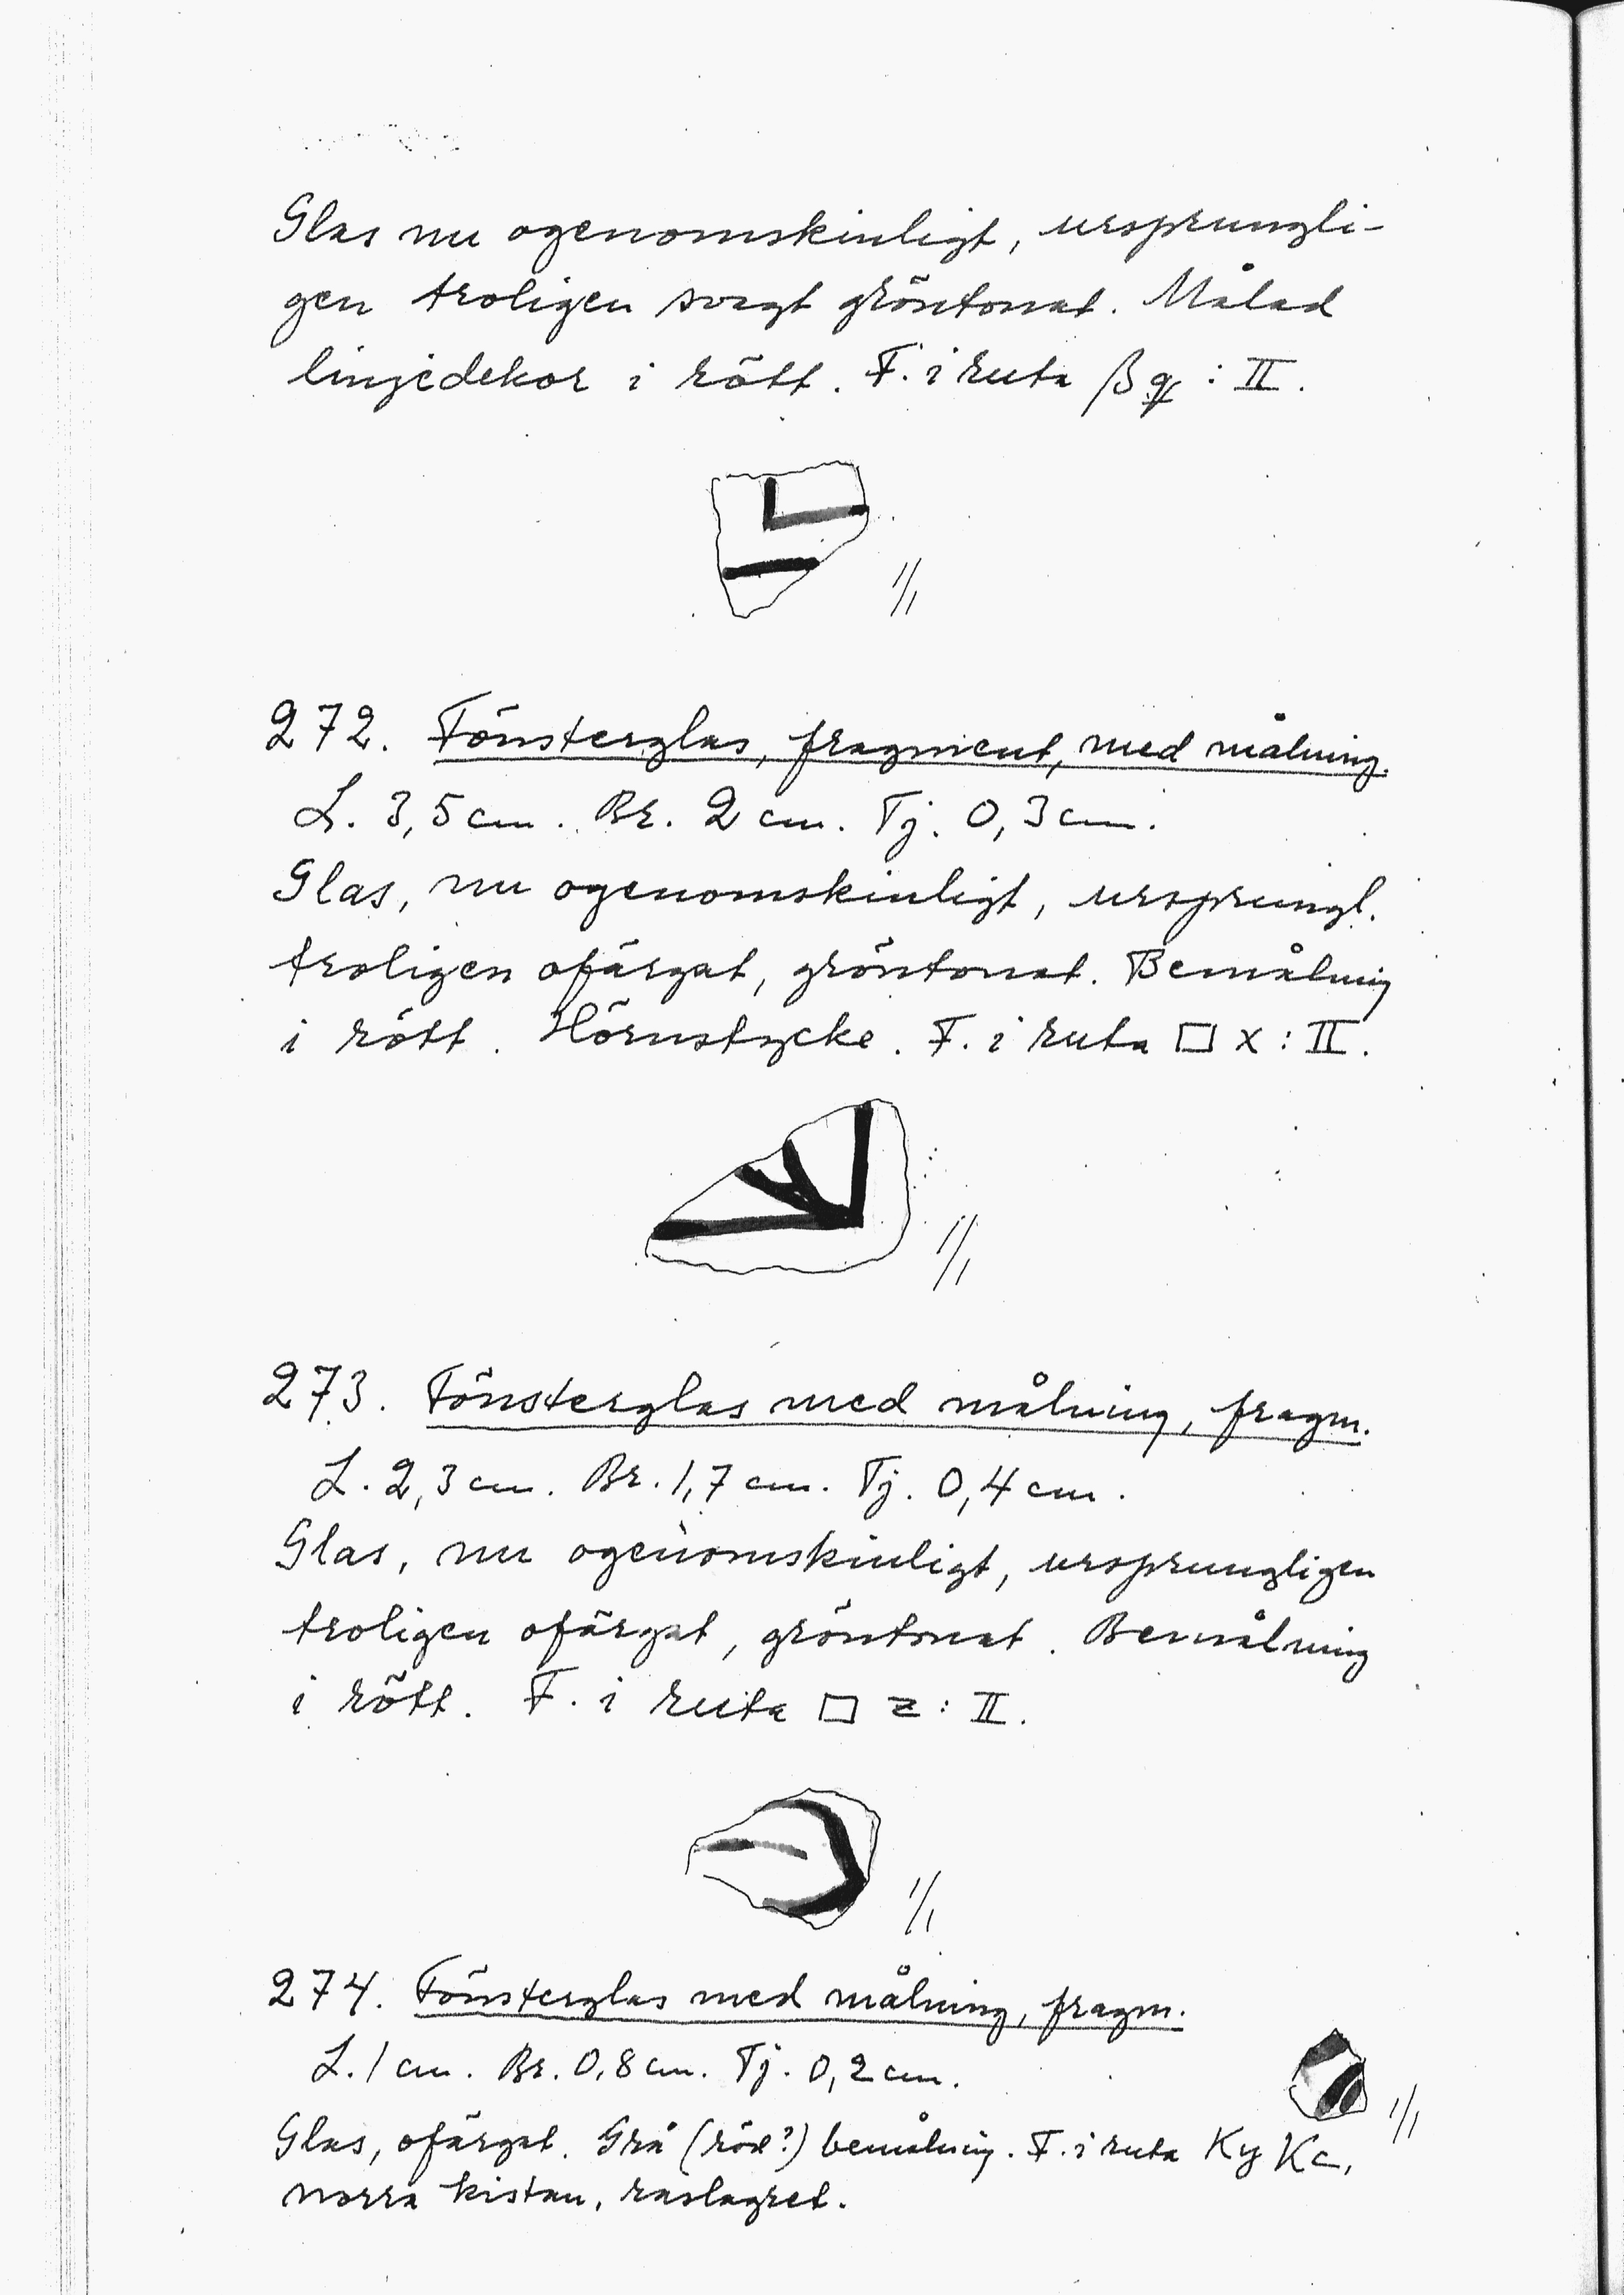 Glas nu ogenomskinligt, ursprungli-
gen troligen svagt gröntonat. Målad
linjedekor i rött. F. i ruta β q : II.
1/1
272. Fönsterglas, fragment, med målning.
L. 3,5 cm. Br. 2 cm. Tj. 0,3 cm.
Glas, nu ogenomskinligt, ursprungl.
troligen ofärgat, gröntonat. Bemålning
i rött. Hörnstycke. F. i ruta □ x : II.
1/1
273. Fönsterglas med målning, fragm.
L. 2,3 cm. Br. 1,7 cm. Tj. 0,4 cm.
Glas, nu ogenomskinligt, ursprungligen
troligen ofärgat, gröntonat. Bemålning
i rött. F. i ruta □ z : II.
1/1
274. Fönsterglas med målning, fragm.
L. 1 cm. Br. 0,8 cm. Tj. 0,2 cm.
1/1
Glas, ofärgat. Grå (röd?) bemålning. F. i ruta Ky Kc,
norra kistan, raslagret.